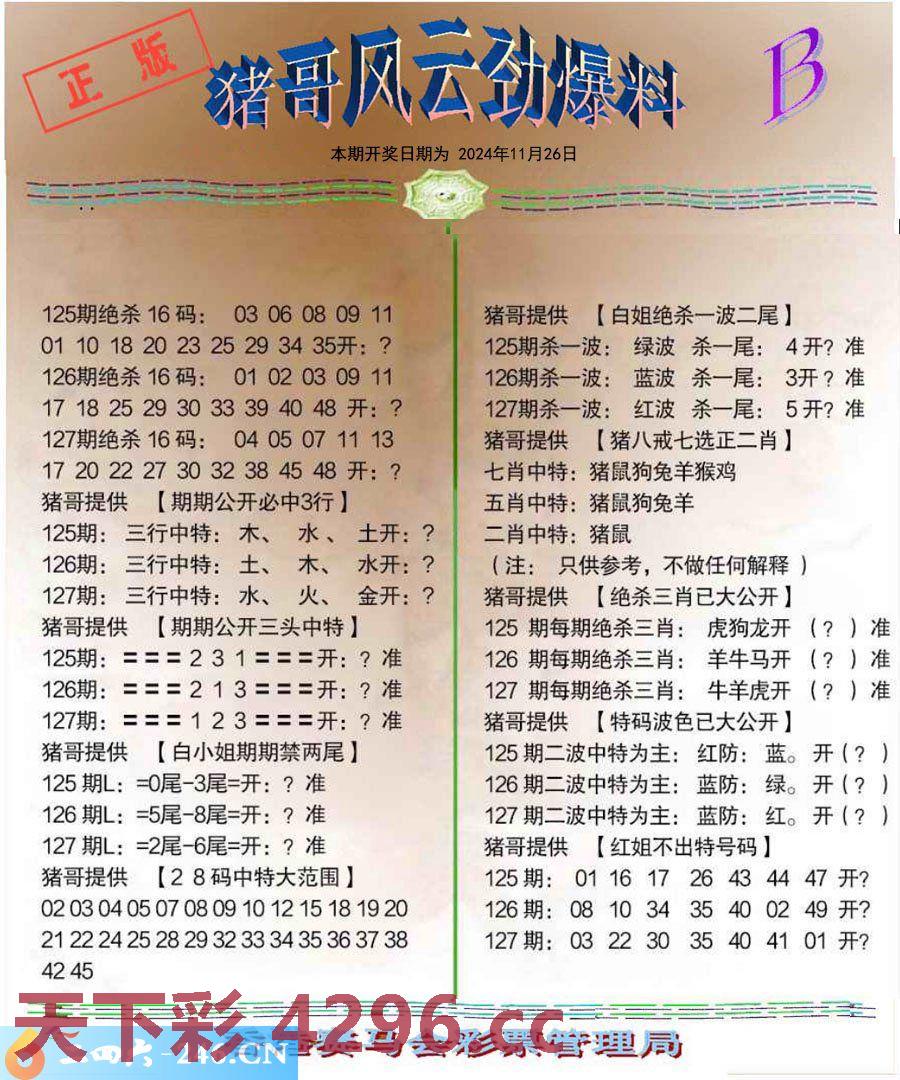 正版
猪哥风云劲爆料
B
本期开奖日期为 2024年11月26日
125期绝杀 16 码： 03 06 08 09 11
01 10 18 20 23 25 29 34 35开：?
126期绝杀 16 码： 01 02 03 09 11
17 18 25 29 30 33 39 40 48 开：?
127期绝杀 16 码： 04 05 07 11 13
17 20 22 27 30 32 38 45 48 开：?
猪哥提供 【期期公开必中3行】
125期： 三行中特： 木、 水、 土开：?
126期： 三行中特： 土、 木、 水开：?
127期： 三行中特： 水、 火、 金开：?
猪哥提供 【期期公开三头中特】
125期：＝＝＝2 3 1＝＝＝开：? 准
126期：＝＝＝2 1 3＝＝＝开：? 准
127期：＝＝＝1 2 3＝＝＝开：? 准
猪哥提供 【白小姐期期禁两尾】
125 期L：=0尾-3尾=开：? 准
126 期L：=5尾-8尾=开：? 准
127 期L：=2尾-6尾=开：? 准
猪哥提供 【2 8 码中特大范围】
02 03 04 05 07 08 09 10 12 15 18 19 20
21 22 24 25 28 29 32 33 34 35 36 37 38
42 45
猪哥提供 【白姐绝杀一波二尾】
125期杀一波： 绿波 杀一尾： 4 开? 准
126期杀一波： 蓝波 杀一尾： 3开 ? 准
127期杀一波： 红波 杀一尾： 5 开? 准
猪哥提供 【猪八戒七选正二肖】
七肖中特：猪鼠狗兔羊猴鸡
五肖中特：猪鼠狗兔羊
二肖中特：猪鼠
（注： 只供参考，不做任何解释 ）
猪哥提供 【绝杀三肖已大公开】
125 期每期绝杀三肖： 虎狗龙开 （? ）准
126 期每期绝杀三肖： 羊牛马开 （? ）准
127 期每期绝杀三肖： 牛羊虎开 （? ）准
猪哥提供 【特码波色已大公开】
125 期二波中特为主： 红防： 蓝。 开（? ）
126 期二波中特为主： 蓝防： 绿。 开（? ）
127 期二波中特为主： 蓝防： 红。 开（? ）
猪哥提供 【红姐不出特号码】
125 期： 01 16 17 26 43 44 47 开?
126 期： 08 10 34 35 40 02 49 开?
127 期： 03 22 30 35 40 41 01 开?
天下彩 4296.cc
二四六-246.CN
马会彩票管理局